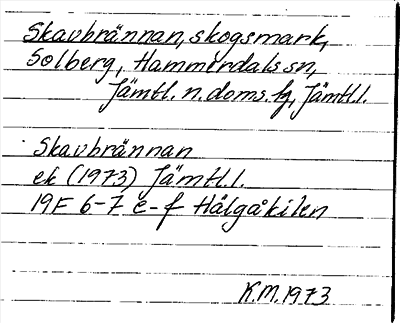 Skavbrännan, skogsmark,
Solberg, Hammerdals sn,
Jämtl. n. doms. fg, Jämtl.l.
Skavbrännan
ek (1973) Jämtl.l.
19F 6-7 e-f Hålgåkilen
K.M. 1973